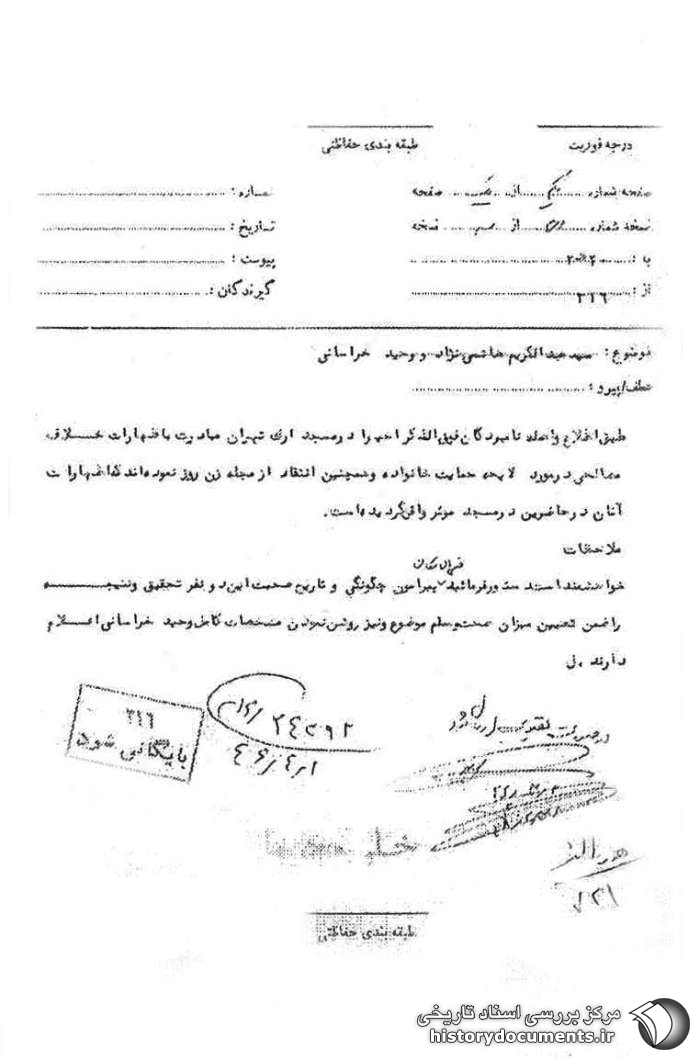 درجه فوریت
طبقه بندی حفاظتی
صفحه شماره یکم از یک صفحه
شماره :
نسخه شماره از نسخه
تاریخ :
به :
پیوست :
از : ۳۱٦
گیرندگان :
موضوع : سید عبدالکریم هاشمی نژاد و وحید خراسانی
عطف/پیرو :
طبق اطلاع واصله نامبردگان فوق الذکر اخیرا در مسجد ارک تهران مبادرت باظهارات خلاف
مصالحی در مورد لایحه حمایت خانواده و همچنین انتقاد از مجله زن روز نموده اند که اظهارات
آنان در حاضرین در مسجد موثر واقع گردیده است.
ملاحظات
خواهشمند است دستور فرمائید پیرامون چگونگی و تاریخ صحبت این دو نفر تحقیق و نتیجه
را ضمن تعیین میزان صحت و سقم موضوع و نیز روشن نمودن مشخصات کامل وحید خراسانی اعلام
دارند .
۳۱٦
بایگانی شود
٤٦/٤/۱
طبقه بندی حفاظتی
مرکز بررسی اسناد تاریخی
historydocuments.ir